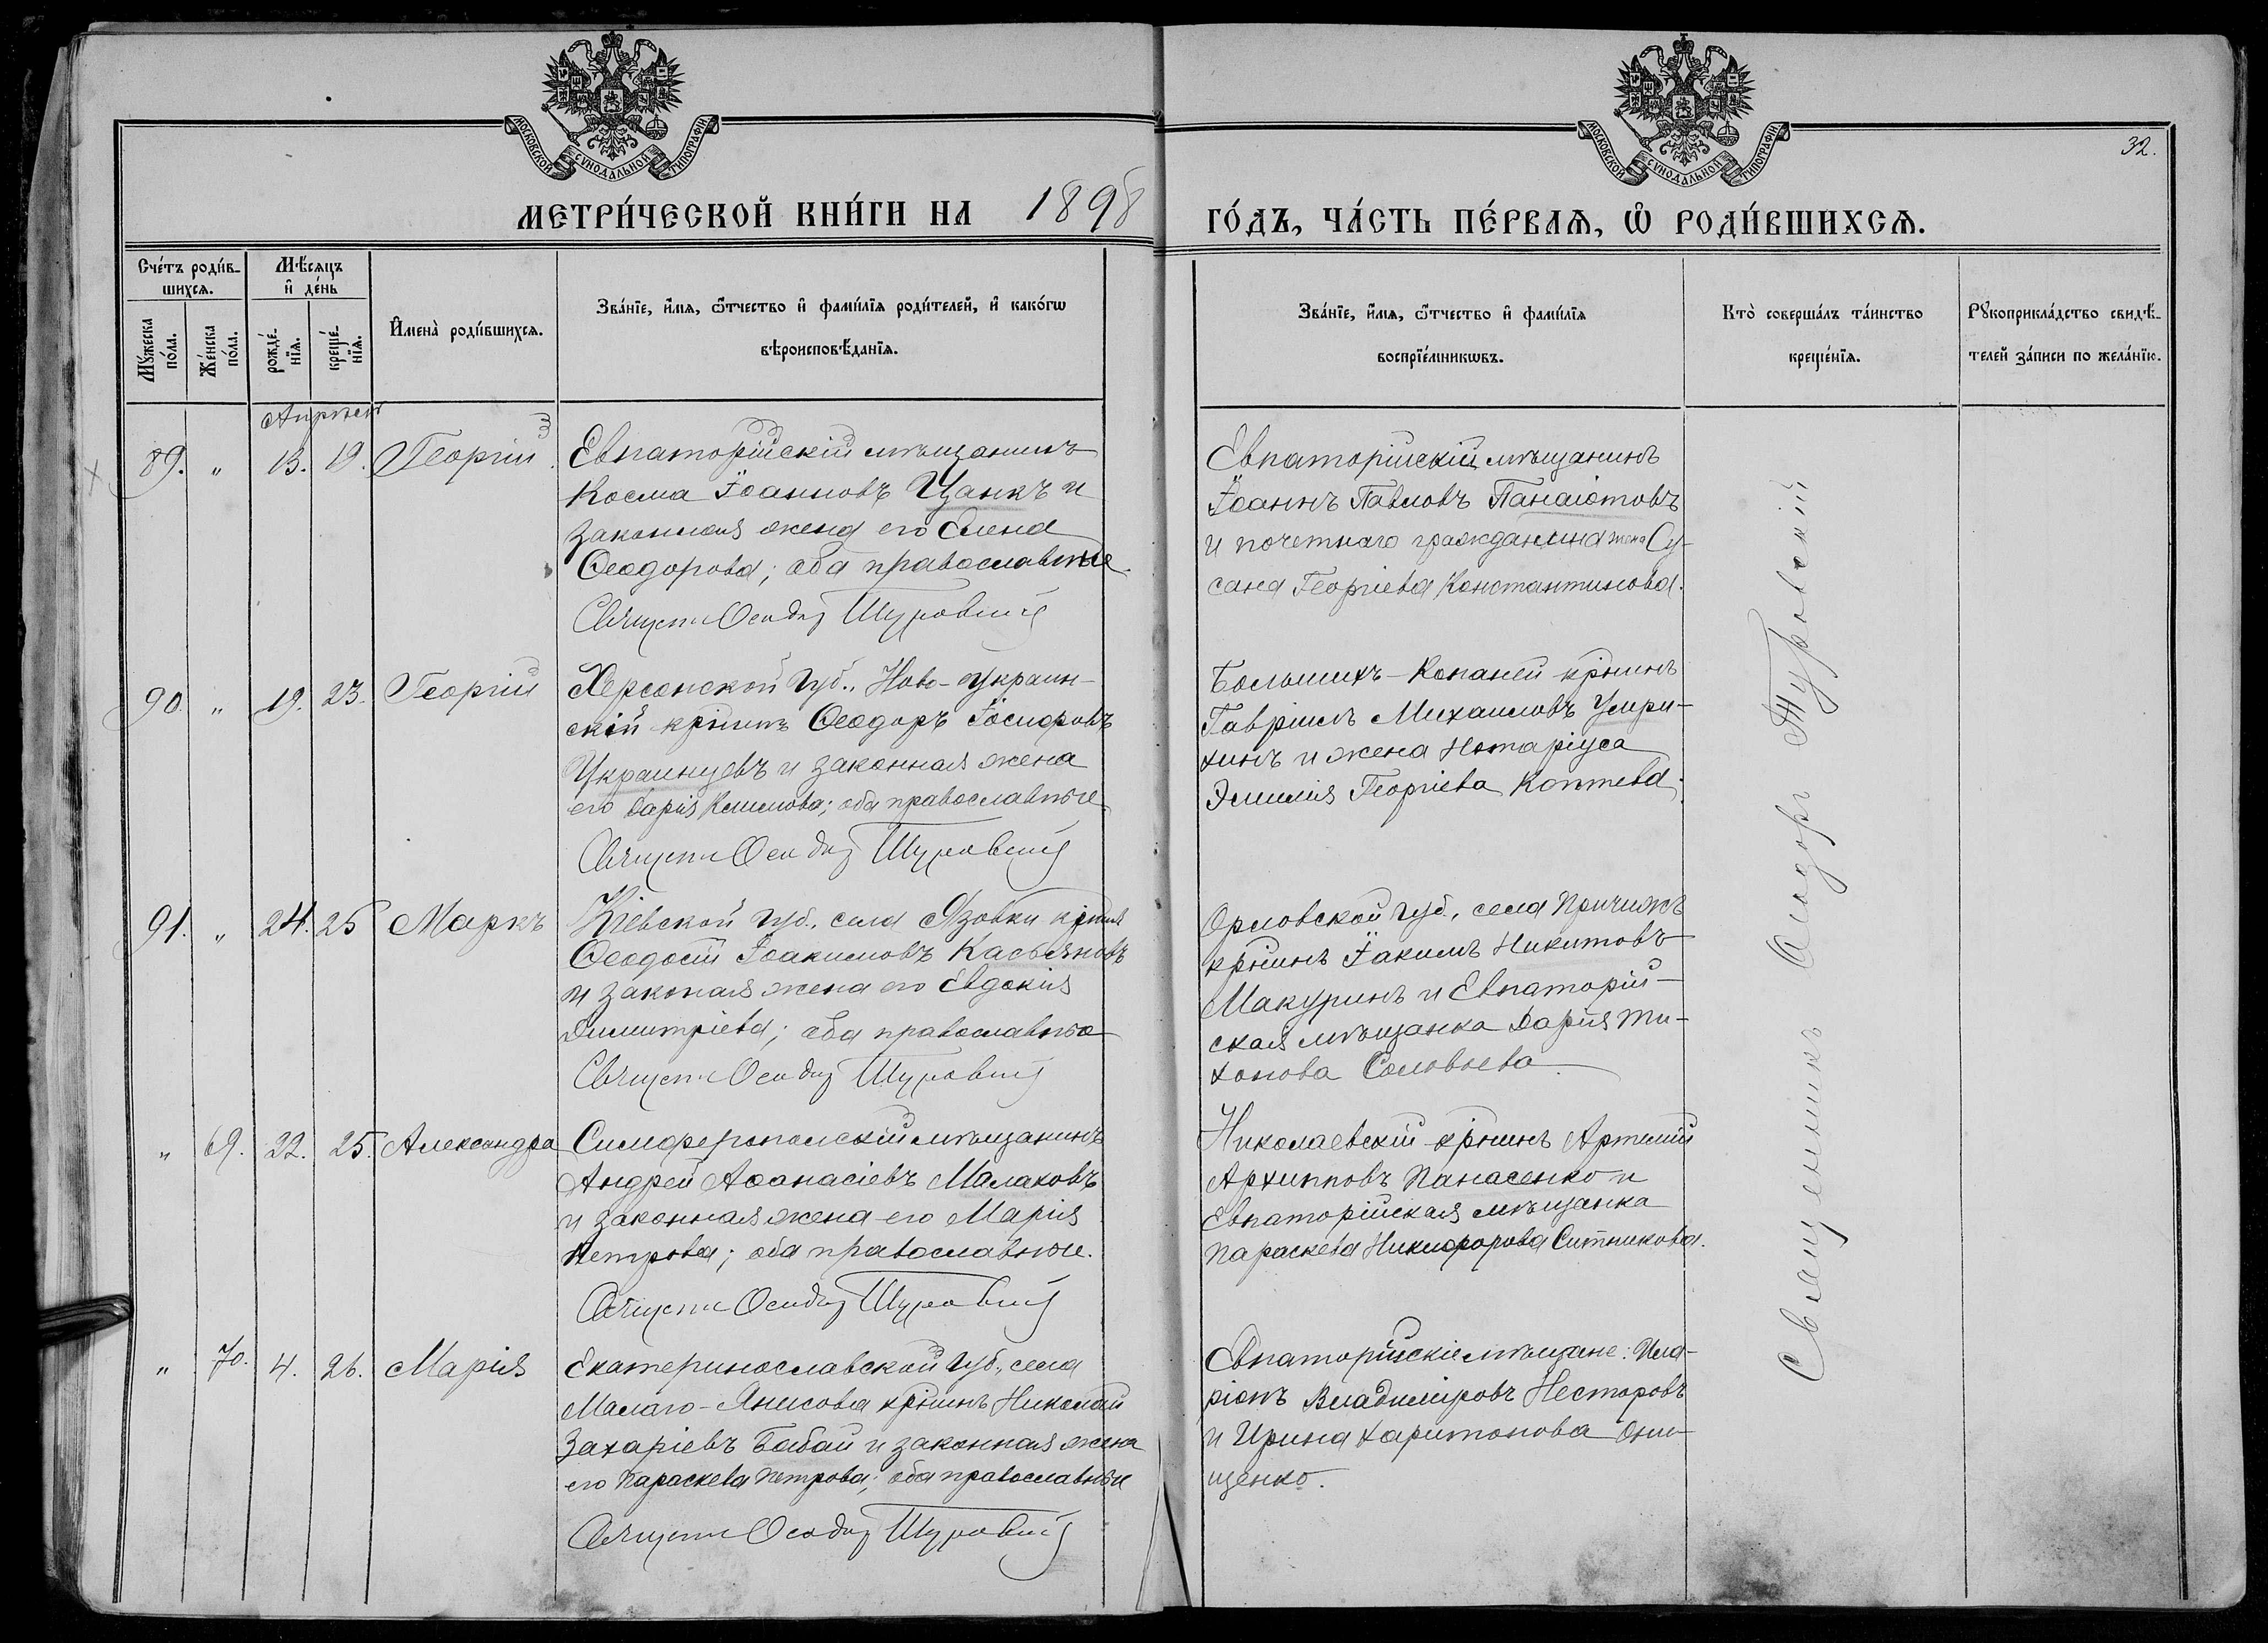 МОСКОВСКОЙ СѴНОДАЛЬНОЙ ТИПОГРАФІИ
МОСКОВСКОЙ СѴНОДАЛЬНОЙ ТИПОГРАФІИ
32.
МЕТРИ́ЧЕСКОЙ КНИ́ГИ НА 1898 ГО́ДЪ, ЧА́СТЬ ПЕ́РВАѦ, Ѡ РОДИ́ВШИХСѦ.
Сче́тъ роди́в-
шихсѧ.
Мꙋ́жеска
по́ла.
Же́нска
по́ла.
Мѣ́сѧцъ
и҆ де́нь
рожде́-
нїѧ.
креще́-
нїѧ.
И҆мена̀ роди́вшихсѧ.
Зва́нїе, и҆́мѧ, ѻ҆́тчество и҆ фами́лїѧ роди́телей, и҆ како́гѡ
вѣроисповѣ́данїѧ.
Зва́нїе, и҆́мѧ, ѻ҆́тчество и҆ фами́лїѧ
воспрїе́мникѡвъ.
Кто̀ соверша́лъ та́инство
креще́нїѧ.
Рꙋкоприкла́дство свидѣ́-
телей за́писи по жела́нїю.
Апрѣль
89. " 13. 19. Георгій
Евпаторійскій мѣщанинъ
Косма Іоанновъ Цанкъ и
законная жена его Елена
Ѳеодорова; оба православные.
Священ. Ѳеодоръ Туровскій
Евпаторійскій мѣщанинъ
Іоаннъ Павловъ Панаіотовъ
и почетнаго гражданина жена Су-
сана Георгіева Константинова.
90. " 19. 23. Георгій
Херсонской губ., Ново-Украин-
скій кр҃нинъ Ѳеодоръ Іосифовъ
Украинцевъ и законная жена
его Дарія Климова; оба православные
Священ. Ѳеодоръ Туровскій
Большихъ-Копаней кр҃нинъ
Гавріилъ Михаиловъ Умри-
хинъ и жена Нотаріуса
Эмилія Георгіева Коптева.
91. " 24. 25 Маркъ
Кіевской губ., села Язовки кр҃нинъ
Ѳеодосій Іоакимовъ Касьяновъ
и законая жена его Евдокія
Димитріева; оба православные
Священ. Ѳеодоръ Туровскій
Орловской губ., села Причижъ
кр҃нинъ Іакимъ Никитовъ
Макуринъ и Евпаторій-
ская мѣщанка Дарія Ти-
хонова Соловьева.
" 69. 22. 25. Александра
Симферопольскій мѣщанинъ
Андрей Аѳанасіевъ Малаховъ
и законная жена его Марія
Петрова; оба православные.
Священ. Ѳеодоръ Туровскій
Николаевскій кр҃нинъ Артемій
Архипповъ Панасенко и
Евпаторійская мѣщанка
Параскева Никифорова Ситникова.
" 70. 4. 26. Марія
Екатеринославской губ., села
Малаго-Янисоля кр҃нинъ Николай
Захаріевъ Бабай и законная жена
его Параскева Петрова; оба православные
Священ. Ѳеодоръ Туровскій
Евпаторійскіе мѣщане: Ила-
ріонъ Владиміровъ Несторовъ
и Ирина Харитонова Они-
щенко.
Священникъ Ѳеодоръ Туровскій